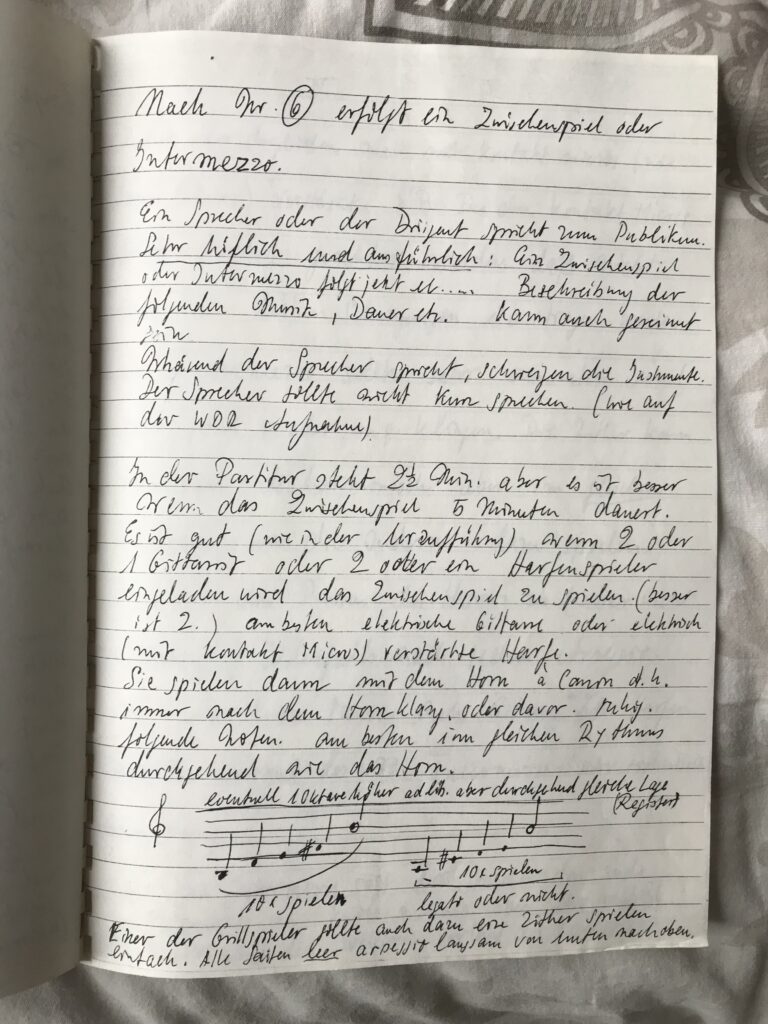 Nach Nr. 6 erfolgt ein Zwischenspiel oder
Intermezzo.
Ein Sprecher oder der Dirigent spricht zum Publikum.
Sehr höflich und ausführlich: Ein Zwischenspiel
oder Intermezzo folgt jetzt etc..... Beschreibung der
folgenden Musik, Dauer etc. Kann auch gereimt
sein
Während der Sprecher spricht, schweigen die Instrumente.
Der Sprecher sollte nicht kurz sprechen. (wie auf
der WDR Aufnahme)
In der Partitur steht 2½ Min. aber es ist besser
wenn das Zwischenspiel 5 Minuten dauert.
Es ist gut (wie in der Uraufführung) wenn 2 oder
1 Gittarist oder 2 oder ein Harfenspieler
eingeladen wird das Zwischenspiel zu spielen. (besser
ist 2.) am besten elektrische Gittarre oder elektrisch
(mit Kontakt Micros) verstärkte Harfe.
Sie spielen dann mit dem Horn à Canon d.h.
immer nach dem Hornklang. oder davor. ruhig.
folgende Noten. am besten im gleichen Rythmus
durchgehend wie das Horn.
eventuell 1 Oktave höher ad lib. aber durchgehend gleiche Lage
(Register)
10x spielen
10x spielen
legato oder nicht.
Einer der Grillspieler sollte auch dazu eine Zither spielen
einfach. Alle Saiten leer arpeggio langsam von unten nach oben.